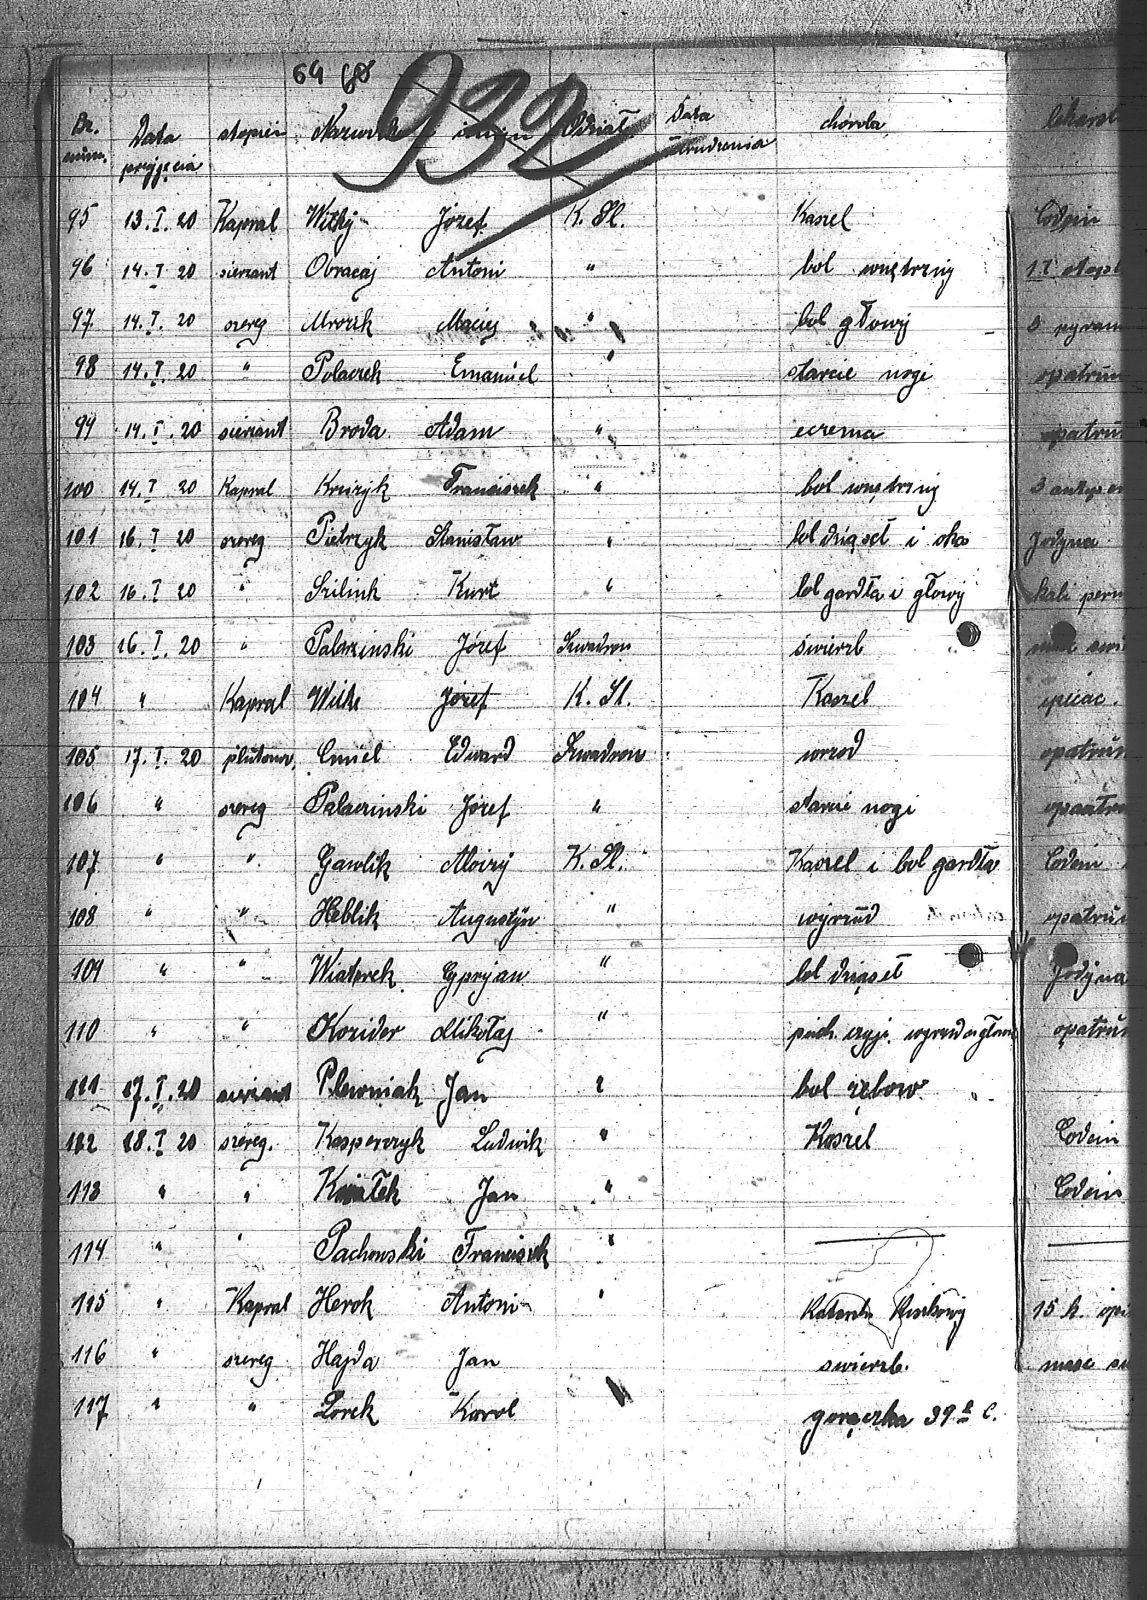 64 68
932
Bz. num. Data przyjęcia stopień Nazwisko imien Odział Data choroba lekarst
95 13. I. 20 Kapral Witky Józef K. Sl. Kaszel Codein
96 14. I 20 sierzant Obracaj Antoni " bol wnętrzny
97. 14. I. 20 szereg Mrozik Maciej " bol głowy 3 pyram
98 14. I. 20 " Polaczek Emanüel " starcie nogi opatrün
99 14. I. 20 sierzant Broda Adam " eczema opatrü
100 14. I 20 Kapral Kruzyk Franciszek " bol wnętrzny 3 antyp
101 16. I 20 szereg Pietrzyk Stanisław " bol dziąseł i oka Jodyna
102 16. I 20 " Szilink Kurt " bol gardła i głowy kali perm
103 16. I. 20 " Palarzinski Józef Szwadron świerzb
104 " Kapral Wilk Józef K. Sl. Kaszel ipecac.
105 17. I. 20 plütonow. Cmüel Edward Szwadron wrzod opatrün
106 " szereg Palaczinski Józef " starcie nogi opaatrün
107 " " Gawlik Aloizy K. Sl. Kaszel i bol gardła Codein
108 " " Heblik Augustyn " wyrzüd opatrün
109 " " Wiatorek Cyprjan " bol dziąseł Jodyna
110 " " Kozider Mikołaj " opatrün
111 17. I. 20 sierzant Plewniak Jan " bol zębow
112 18. I 20 szereg. Kasperczyk Ludwik " Kaszel Codein
113 " " Kwiatek Jan " Codein
114 " " Pachonski Franciszek "
115 " Kapral Herok Antoni " Katarh Kiszkowy 15 k. opi
116 " szereg Hajda Jan swierzb.
117 " " Zorek Karol gorączka 39 C.